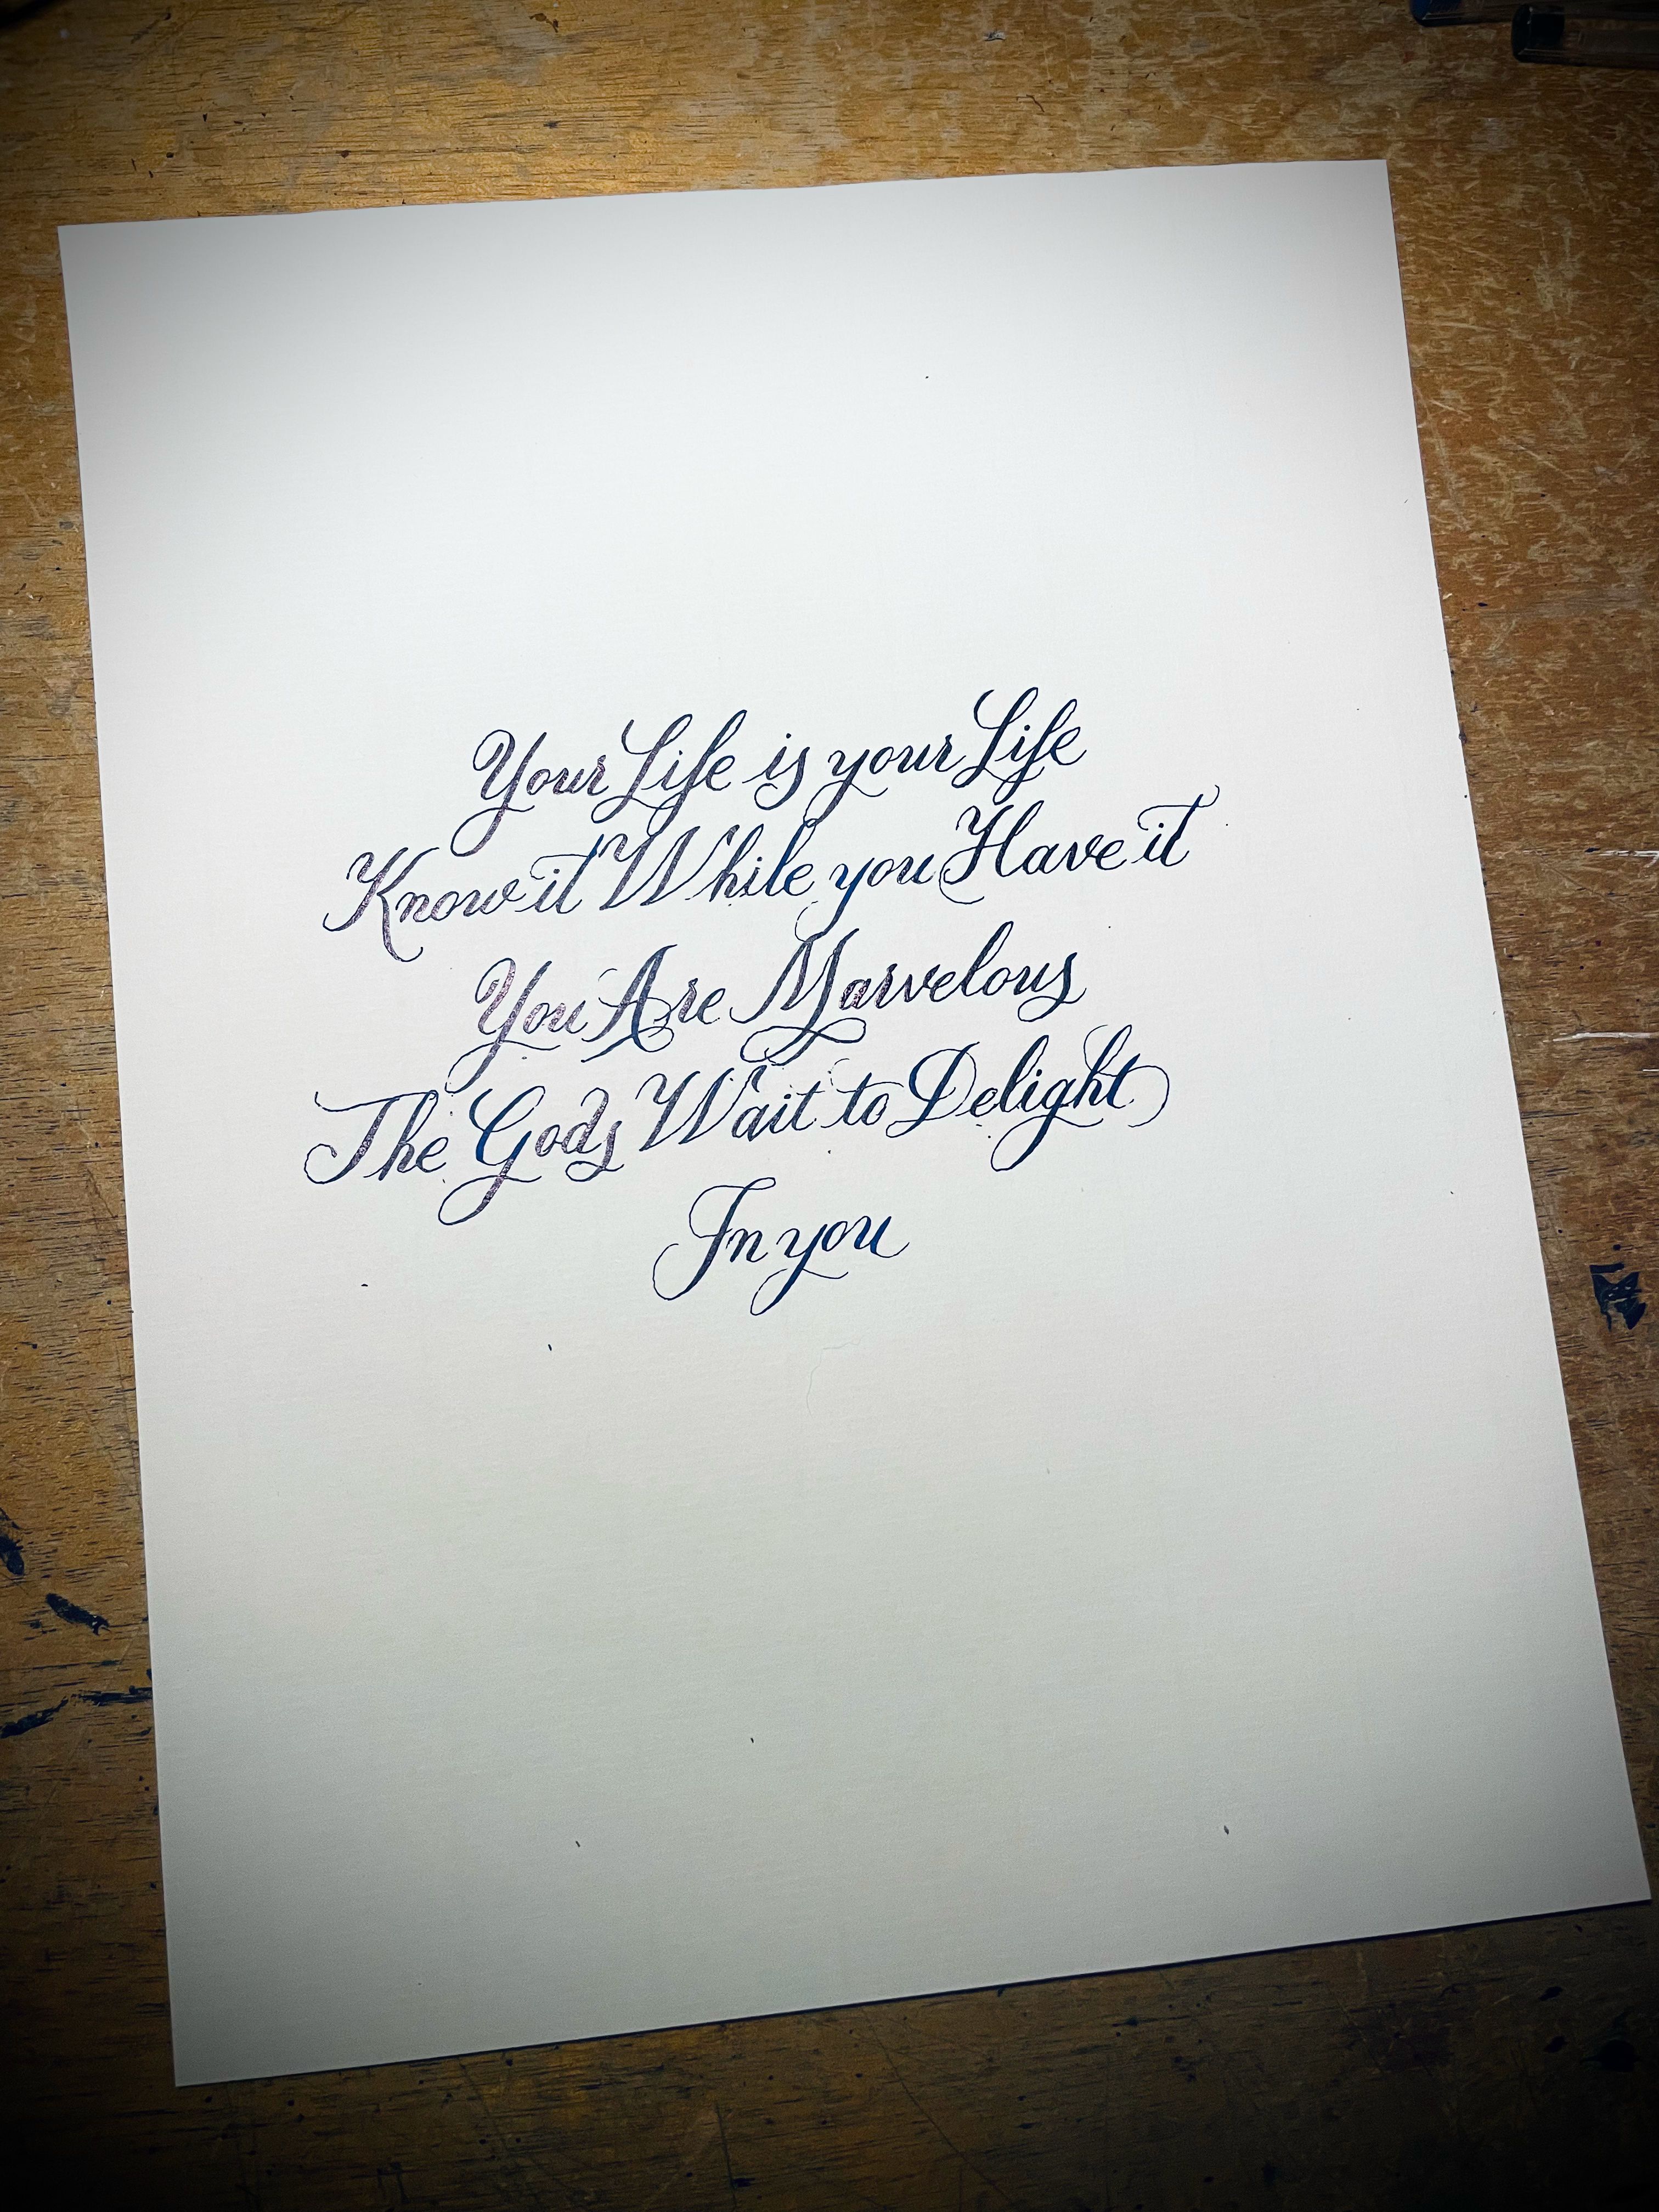 Your Life is your Life
Know it While you Have it
You Are Marvelous
The Gods Wait to Delight
In you